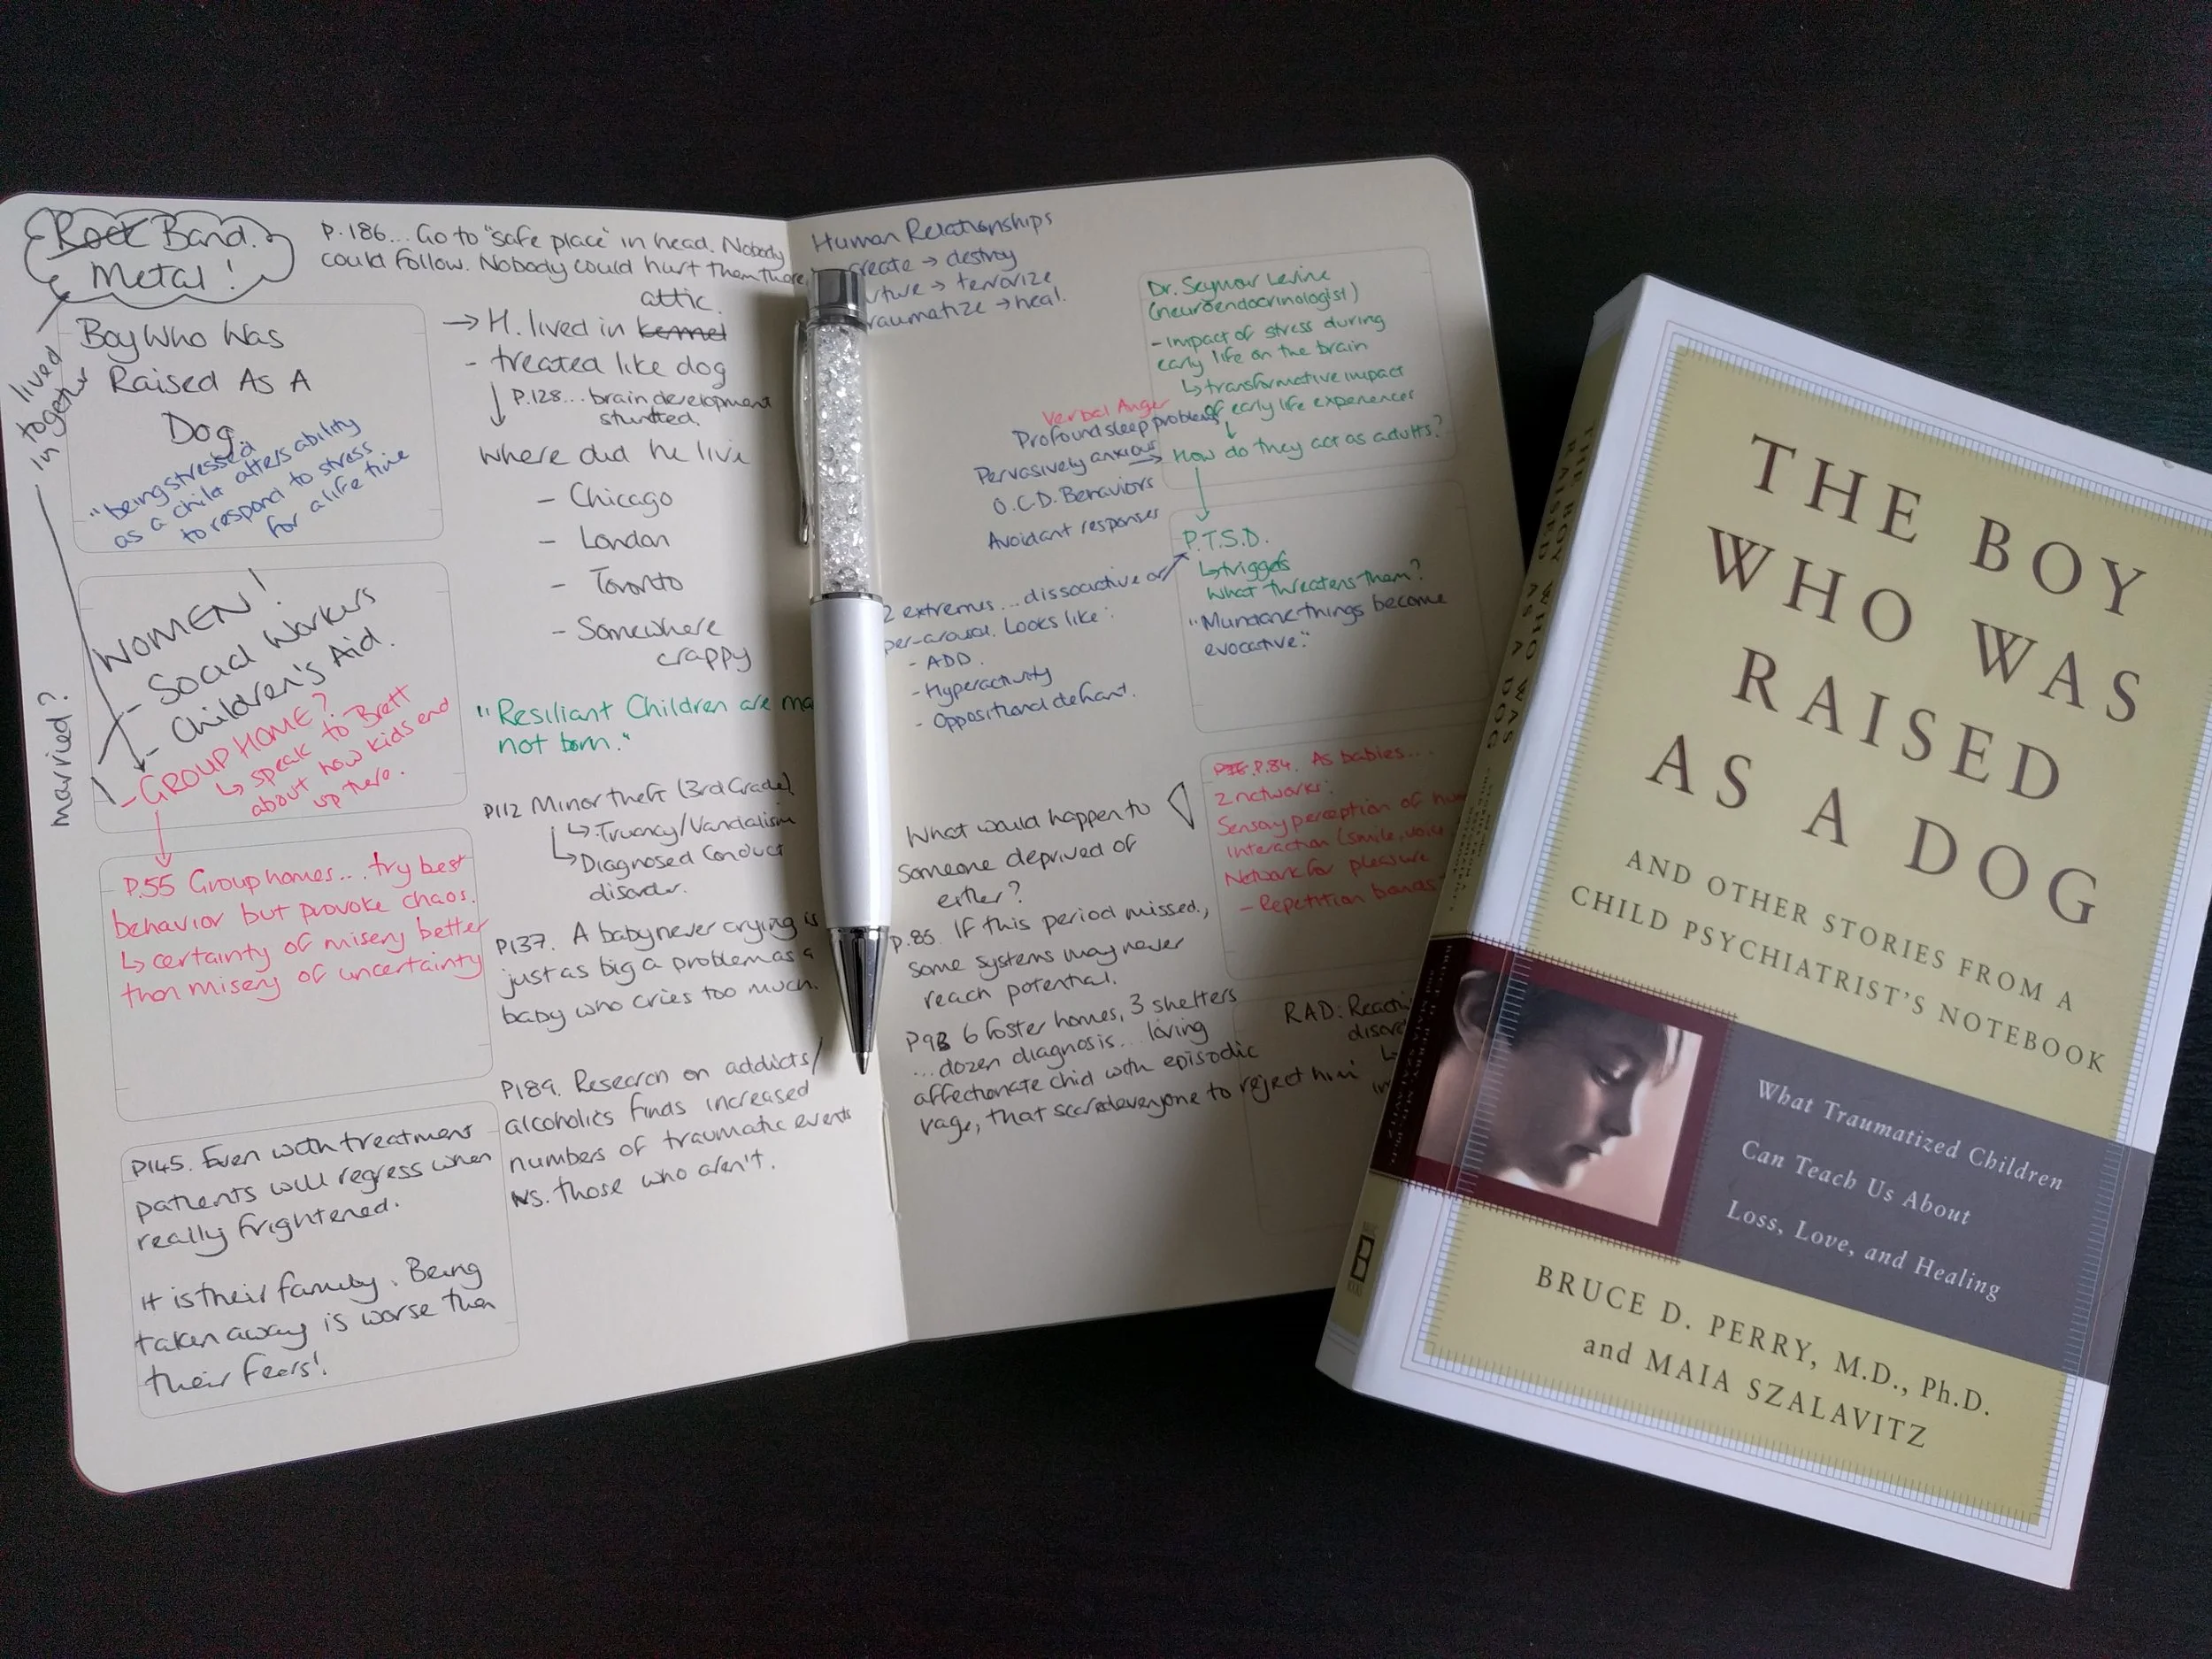 Rock Band.
Metal!
lived
together
in
married?
Boy Who Was
Raised As A
Dog
"being stressed
as a child alters ability
to respond to stress
for a life time
WOMEN!
- Social Workers
- Children's Aid.
- GROUP HOME?
↳ speak to Brett
about how kids end
up there.
P.55 Group homes... try best
behavior but provoke chaos.
↳ certainty of misery better
than misery of uncertainty
P145. Even with treatment
patients will regress when
really frightened.
It is their family. Being
taken away is worse than
their fears!
P.186... Go to "safe place" in head. Nobody
could follow. Nobody could hurt them there.
attic.
→ H. lived in kennel
- treated like dog
↓ P.128... brain development
stunted.
Where did he live
- Chicago
- London
- Toronto
- Somewhere
crappy
"Resiliant Children are
not born."
P112 Minor theft (3rd Grade)
↳ Truancy/Vandalism
↳ Diagnosed Conduct
disorder.
P137. A baby never crying is
just as big a problem as a
baby who cries too much.
P189. Research on addicts/
alcoholics finds increased
numbers of traumatic events
vs. those who aren't.
Human Relationships
create → destroy
→ terrorize
→ heal.
Dr. Seymour Levine
(neuroendocrinologist)
- impact of stress during
early life on the brain
↳ transformative impact
of early life experiences
↓
How do they act as adults?
Verbal Anger
Profound sleep problems
Pervasively anxious →
O.C.D. Behaviors
Avoidant responses
P.T.S.D.
↳ triggers
What threatens them?
"Mundane things become
evocative."
2 extremes... dissociative or
Looks like:
- ADD.
- Hyperactivity
- Oppositional defiant.
P.84. As babies...
2 networks:
Sensory perception of
interaction (smile, voice
Network for pleasure
- Repetition bonds
What would happen to
someone deprived of
either?
P.85. If this period missed,
some systems may never
reach potential.
P93 6 foster homes, 3 shelters
...dozen diagnosis... loving
affectionate chid with episodic
rage, that scared everyone to reject him
RAD:
THE BOY
WHO WAS
RAISED
AS A DOG
AND OTHER STORIES FROM A
CHILD PSYCHIATRIST'S NOTEBOOK
What Traumatized Children
Can Teach Us About
Loss, Love, and Healing
BRUCE D. PERRY, M.D., Ph.D.
and MAIA SZALAVITZ
THE BOY WHO WAS
RAISED AS A DOG